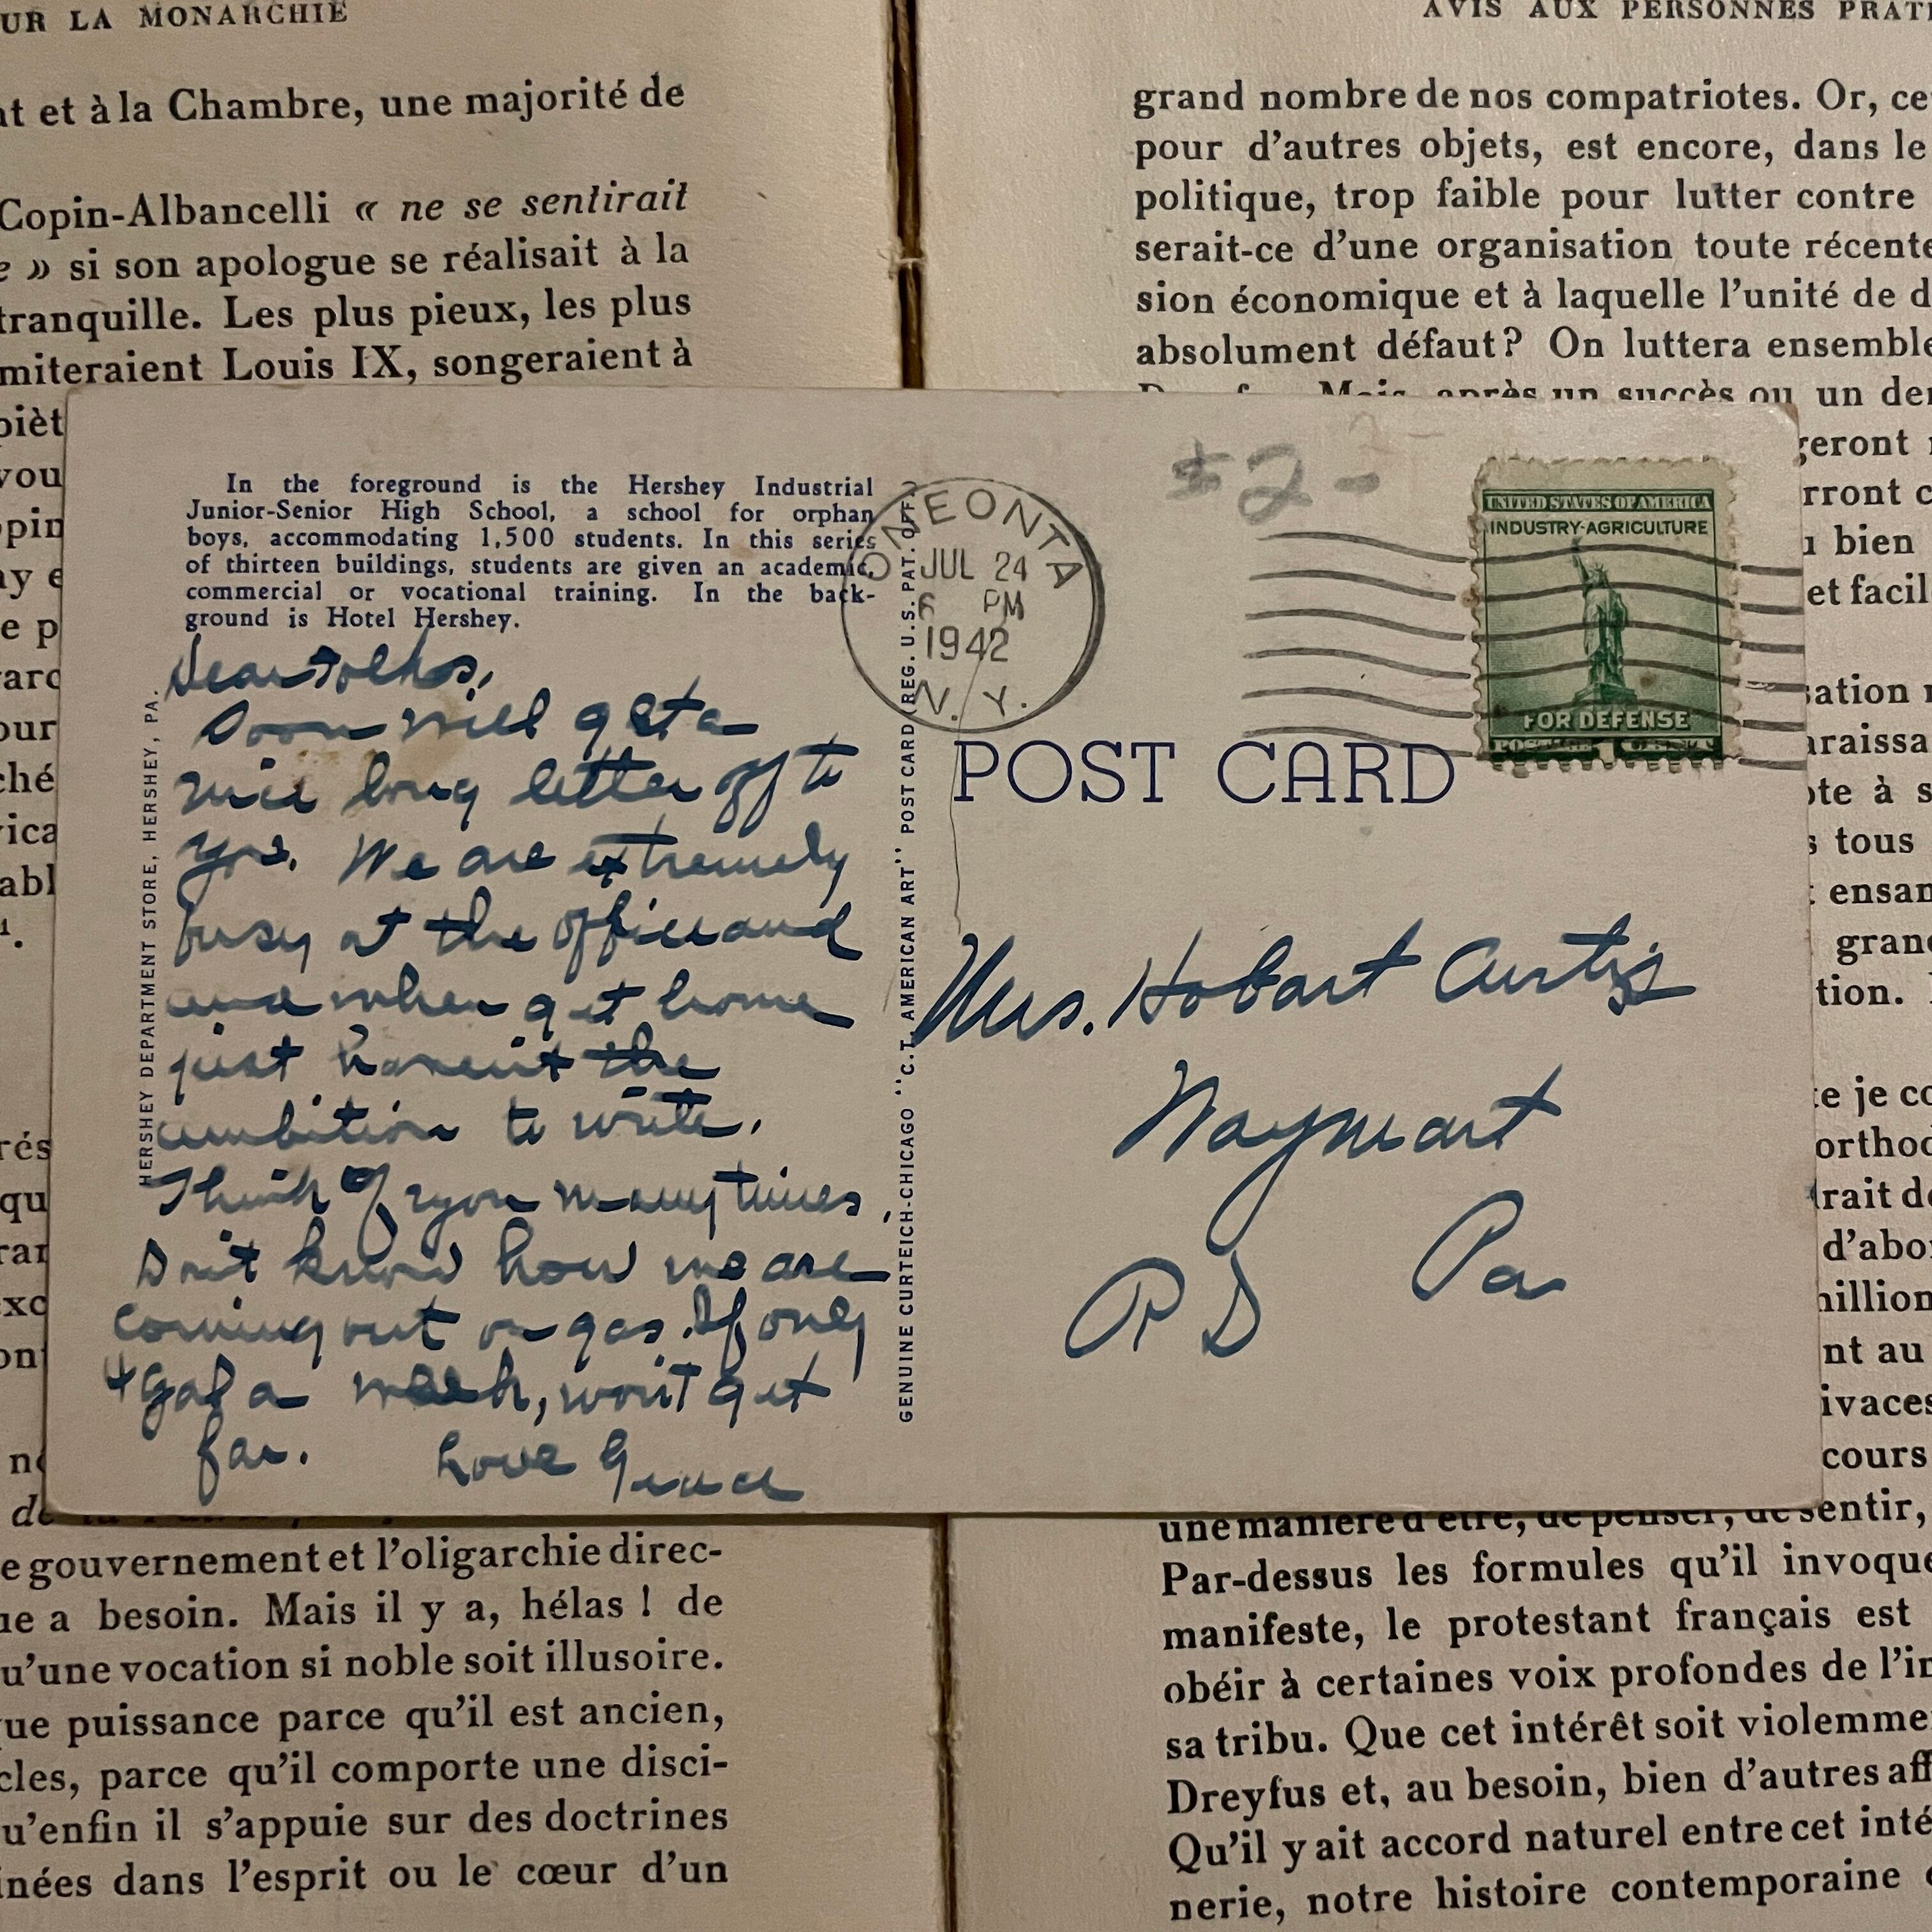 UR LA MONARCHIE
nt et à la Chambre, une majorité de
Copin-Albancelli « ne se sentirait
e » si son apologue se réalisait à la
tranquille. Les plus pieux, les plus
miteraient Louis IX, songeraient à
pièt
vou
opin
ay e
e p
garc
our
ché
vica
abl
¹.
rés
qu
rar
exc
ont
no
de
e gouvernement et l'oligarchie direc-
ue a besoin. Mais il y a, hélas ! de
u'une vocation si noble soit illusoire.
que puissance parce qu'il est ancien,
cles, parce qu'il comporte une disci-
u'enfin il s'appuie sur des doctrines
inées dans l'esprit ou le cœur d'un
AVIS AUX PERSONNES PRATI
grand nombre de nos compatriotes. Or, ce
pour d'autres objets, est encore, dans le
politique, trop faible pour lutter contre
serait-ce d'une organisation toute récente
sion économique et à laquelle l'unité de d
absolument défaut ? On luttera ensemble
Mais, après un succès ou un der
geront
rront c
u bien
et facil
sation
araissa
ote à s
s tous
t ensan
grand
tion.
te je co
orthod
trait de
d'abor
million
nt au
ivaces
cours
sentir,
une manière d'être, de penser, de
Par-dessus les formules qu'il invoque
manifeste, le protestant français est
obéir à certaines voix profondes de l'in
sa tribu. Que cet intérêt soit violemme
Dreyfus et, au besoin, bien d'autres aff
Qu'il y ait accord naturel entre cet inté
nerie, notre histoire contemporaine
In the foreground is the Hershey Industrial
Junior-Senior High School, a school for orphan
boys, accommodating 1,500 students. In this series
of thirteen buildings, students are given an academic,
commercial or vocational training. In the back-
ground is Hotel Hershey.
HERSHEY DEPARTMENT STORE, HERSHEY, PA.
Dear Folks,
Soon will get a
nice long letter off to
you. We are extremely
busy at the office and
and when get home
just haven't the
ambition to write.
Think of you many times.
Don't know how we are
coming out on gas. If only
4 gal a week, won't get
far. Love Grace
GENUINE CURTEICH-CHICAGO "C.T. AMERICAN ART" POST CARD (REG. U.S. PAT. OFF.)
ONEONTA
JUL 24
6 PM
1942
N. Y.
$2-
UNITED STATES OF AMERICA
INDUSTRY-AGRICULTURE
FOR DEFENSE
POST CARD
Mrs. Hobart Curtis
Waymart
Pa
R D